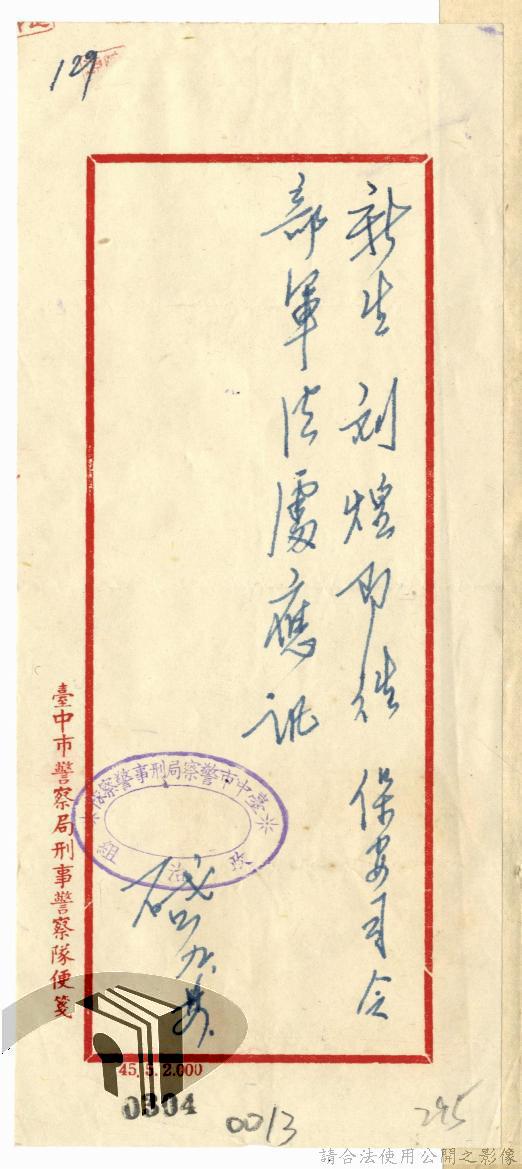 129
新生劉煌即往 保安司令
部軍法處應訊
臺中市警察局刑事警察隊
政治組
臺中市警察局刑事警察隊便箋
45.5.2.000
0304
0013
295
請合法使用公開之影像